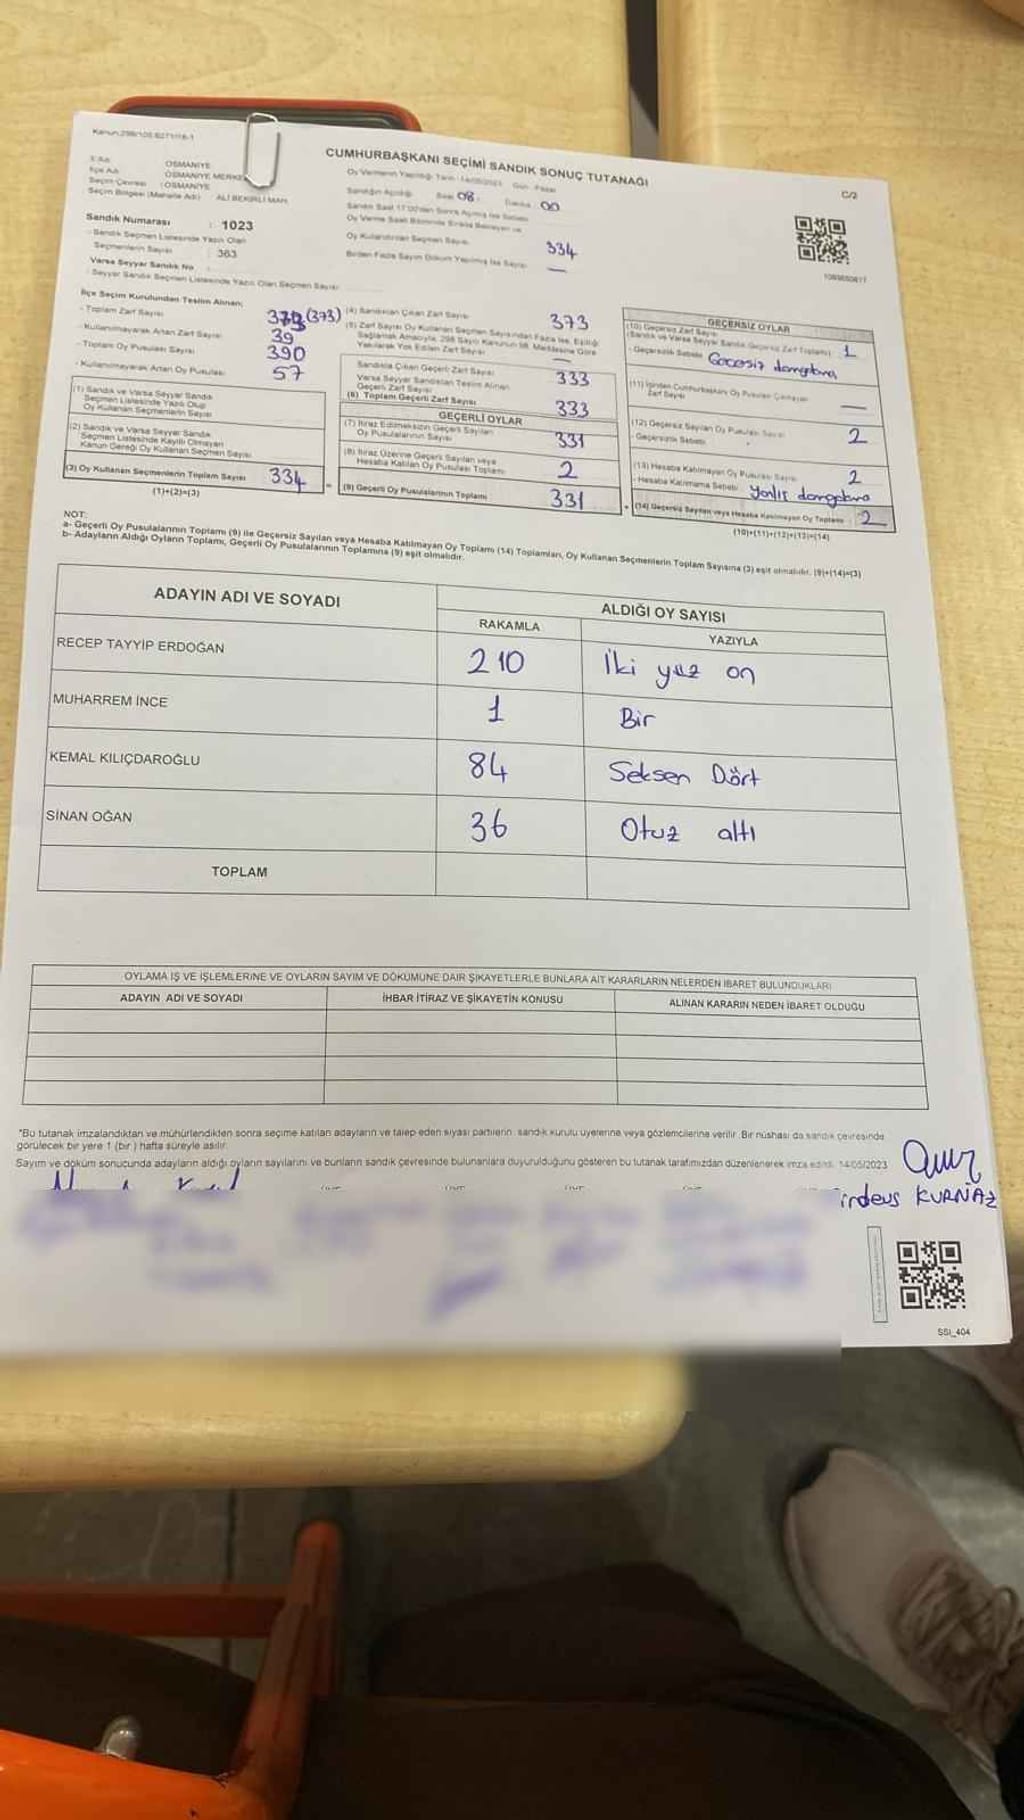 Kanun:298/105 6271/16-1
CUMHURBAŞKANI SEÇİMİ SANDIK SONUÇ TUTANAĞI
C/2
İl Adı OSMANİYE
İlçe Adı OSMANİYE MERKEZ
Seçim Çevresi : OSMANİYE
Seçim Bölgesi (Mahalle Adı) ALİ BEKİRLİ MAH.
Oy Vermenin Yapıldığı Tarih : 14/05/2023 Gün : Pazar
Sandığın Açıldığı Saat 08 Dakika 00
Sandık Numarası : 1023
Sandık Seçmen Listesinde Yazılı Olan
Seçmenlerin Sayısı : 363
Oy Kullandırılan Seçmen Sayısı 334
Birden Fazla Sayım Döküm Yapılmış İse Sayısı —
Varsa Seyyar Sandık No
Seyyar Sandık Seçmen Listesinde Yazılı Olan Seçmen Sayısı
İlçe Seçim Kurulundan Teslim Alınan;
- Toplam Zarf Sayısı (373)
- Kullanılmayarak Artan Zarf Sayısı 39
- Toplam Oy Pusulası Sayısı 390
- Kullanılmayarak Artan Oy Pusulası 57
(1) Sandık ve Varsa Seyyar Sandık
Seçmen Listesinde Yazılı Olup
Oy Kullanan Seçmenlerin Sayısı
(2) Sandık ve Varsa Seyyar Sandık
Seçmen Listesinde Kayıtlı Olmayan
Kanun Gereği Oy Kullanan Seçmen Sayısı
(3) Oy Kullanan Seçmenlerin Toplam Sayısı 334
(1)+(2)=(3)
(4) Sandıktan Çıkan Zarf Sayısı 373
(5) Zarf Sayısı Oy Kullanan Seçmen Sayısından Fazla İse, Eşitliği
Sağlamak Amacıyla, 298 Sayılı Kanunun 98. Maddesine Göre
Yakılarak Yok Edilen Zarf Sayısı —
Sandıkta Çıkan Geçerli Zarf Sayısı 333
Varsa Seyyar Sandıktan Teslim Alınan
Geçerli Zarf Sayısı
(6) Toplam Geçerli Zarf Sayısı 333
GEÇERLİ OYLAR
(7) İtiraz Edilmeksizin Geçerli Sayılan
Oy Pusulalarının Sayısı 331
(8) İtiraz Üzerine Geçerli Sayılan veya
Hesaba Katılan Oy Pusulası Toplamı 2
(9) Geçerli Oy Pusulalarının Toplamı 331
GEÇERSİZ OYLAR
(10) Geçersiz Zarf Sayısı
(Sandık ve Varsa Seyyar Sandık Geçersiz Zarf Toplamı) 1
- Geçersizlik Sebebi
(11) İçinden Cumhurbaşkanı Oy Pusulası Çıkmayan
Zarf Sayısı —
(12) Geçersiz Sayılan Oy Pusulası Sayısı 2
- Geçersizlik Sebebi
(13) Hesaba Katılmayan Oy Pusulası Sayısı 2
- Hesaba Katılmama Sebebi
(14) Geçersiz Sayılan veya Hesaba Katılmayan Oy Toplamı 2
(10)+(11)+(12)+(13)=(14)
NOT:
a- Geçerli Oy Pusulalarının Toplamı (9) ile Geçersiz Sayılan veya Hesaba Katılmayan Oy Toplamı (14) Toplamları, Oy Kullanan Seçmenlerin Toplam Sayısına (3) eşit olmalıdır. (9)+(14)=(3)
b- Adayların Aldığı Oyların Toplamı, Geçerli Oy Pusulalarının Toplamına (9) eşit olmalıdır.
ADAYIN ADI VE SOYADI
ALDIĞI OY SAYISI
RAKAMLA YAZIYLA
RECEP TAYYİP ERDOĞAN 210 İki yüz on
MUHARREM İNCE 1 Bir
KEMAL KILIÇDAROĞLU 84 Seksen Dört
SİNAN OĞAN 36 Otuz altı
TOPLAM
OYLAMA İŞ VE İŞLEMLERİNE VE OYLARIN SAYIM VE DÖKÜMÜNE DAİR ŞİKAYETLERLE BUNLARA AİT KARARLARIN NELERDEN İBARET BULUNDUKLARI
ADAYIN ADI VE SOYADI İHBAR İTİRAZ VE ŞİKAYETİN KONUSU ALINAN KARARIN NEDEN İBARET OLDUĞU
*Bu tutanak imzalandıktan ve mühürlendikten sonra seçime katılan adayların ve talep eden siyasi partilerin, sandık kurulu üyelerine veya gözlemcilerine verilir. Bir nüshası da sandık çevresinde
görülecek bir yere 1 (bir) hafta süreyle asılır.
Sayım ve döküm sonucunda adayların aldığı oyların sayılarını ve bunların sandık çevresinde bulunanlara duyurulduğunu gösteren bu tutanak tarafımızdan düzenlenerek imza edildi. 14/05/2023
irdevs KURNAZ
SSI_404